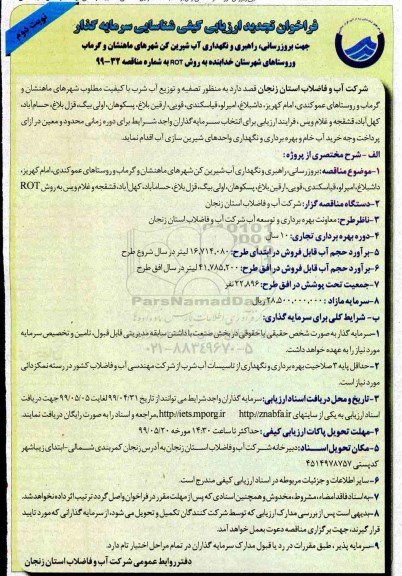 نوبت دوم
فراخوان تجدید ارزیابی کیفی شناسایی سرمایه گذار
جهت بروزرسانی، راهبری و نگهداری آب شیرین کن شهرهای ماهنشان و گرماب
وروستاهای شهرستان خدابنده به روش ROT به شماره مناقصه ۳۲-۹۹
شرکت آب و فاضلاب استان زنجان قصد دارد به منظور تصفیه و توزیع آب شرب با کیفیت مطلوب شهرهای ماهنشان و
گرماب و روستاهای عموکندی، امام کهریز، داشبلاغ، امیرلو، قیاسکندی، قویی، ارقین بلاغ، پسکوهان، اولی بیگ، قزل بلاغ، حسام آباد،
کهل آباد، قشقجه و غلام ویس، فرایند ارزیابی برای انتخاب سرمایه گذاران واجد شرایط برای دوره زمانی محدود و معین در ازای
پرداخت وجه خرید آب خام و بهره برداری و نگهداری واحدهای شیرین سازی آب اقدام نماید.
الف - شرح مختصری از پروژه:
۱-موضوع مناقصه: بروزرسانی، راهبری و نگهداری آب شیرین کن شهرهای ماهنشان و گرماب و روستاهای عموکندی، امام کهریز،
داشبلاغ، امیرلو، قیاسکندی، قویی، ارقین بلاغ، پسکوهان، اولی بیگ، قزل بلاغ، حسام آباد، کهل آباد، قشقجه و غلام ویس به روش ROT
۲-دستگاه مناقصه گزار: شرکت آب و فاضلاب استان زنجان
۳-ناظر طرح: معاونت بهره برداری و توسعه آب شرکت آب و فاضلاب استان زنجان
۴-دوره بهره برداری تجاری: ۱۰ سال
۵-برآورد حجم آب قابل فروش در ابتدای طرح: ۱۶,۷۱۴,۰۸۰ لیتر در سال شروع طرح
۶-برآورد حجم آب قابل فروش در افق طرح: ۴۱,۷۸۵,۲۰۰ لیتر در سال افق طرح
۷-جمعیت تحت پوشش در افق طرح: ۲۲,۸۹۶ نفر
۸-سرمایه مازاد: ۲۸,۵۰۰,۰۰۰,۰۰۰ ریال
ب- شرایط کلی برای سرمایه گذاری:
۱-سرمایه گذار به صورت شخص حقیقی یا حقوقی در بخش صنعت با داشتن سابقه مدیریتی قابل قبول، تامین و تخصیص سرمایه
مورد نیاز را به عهده خواهد داشت.
۲-حداقل پایه ۲ صلاحیت بهره برداری و نگهداری از تاسیسات آب شرب از شرکت مهندسی آب و فاضلاب کشور در رسته نمکزدائی
مورد نیاز است.
۳-تاریخ و محل دریافت اسناد ارزیابی: سرمایه گذاران واجد شرایط می توانند از تاریخ ۹۹/۰۴/۳۱ لغایت ۹۹/۰۵/۰۵ جهت دریافت
اسناد ارزیابی به یکی از سایتهای http://znabfa.ir http://iets.mporg.ir مراجعه و اسناد را به صورت رایگان دریافت نمایند.
۴-مهلت تحویل پاکات ارزیابی کیفی: حداکثر تا ساعت ۱۴:۳۰ مورخه ۹۹/۰۵/۲۰
۵-مکان تحویل اسناد: دبیرخانه شرکت آب و فاضلاب استان زنجان به آدرس زنجان کمربندی شمالی-ابتدای زیباشهر
کدپستی ۴۵۱۴۹۷۸۷۵۷
۶-سایر اطلاعات و جزئیات مربوطه در اسناد ارزیابی کیفی مندرج است.
۷-به اسناد فاقد امضاء، مشروط، مخدوش و همچنین اسنادی که پس از مهلت مقرر در فراخوان واصل گردد ترتیب اثر داده نخواهد شد.
۸-بدیهی است پس از بررسی مدارک ارزیابی که توسط شرکت کنندگان تکمیل و تحویل می شود، از سرمایه گذارانی که مورد تایید
قرار گیرند، جهت برگزاری مناقصه دعوت بعمل خواهد آمد.
۹-سرمایه پذیر، طبق مقررات در رد یا قبول مدارک سرمایه گذاران در تمام مراحل اختیار تام دارد.
دفتر روابط عمومی شرکت آب و فاضلاب استان زنجان